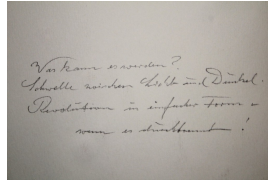 Was kann es werden?
Schwelle zwischen Licht und Dunkel.
Revolution in einfacher Form –
wenn es !